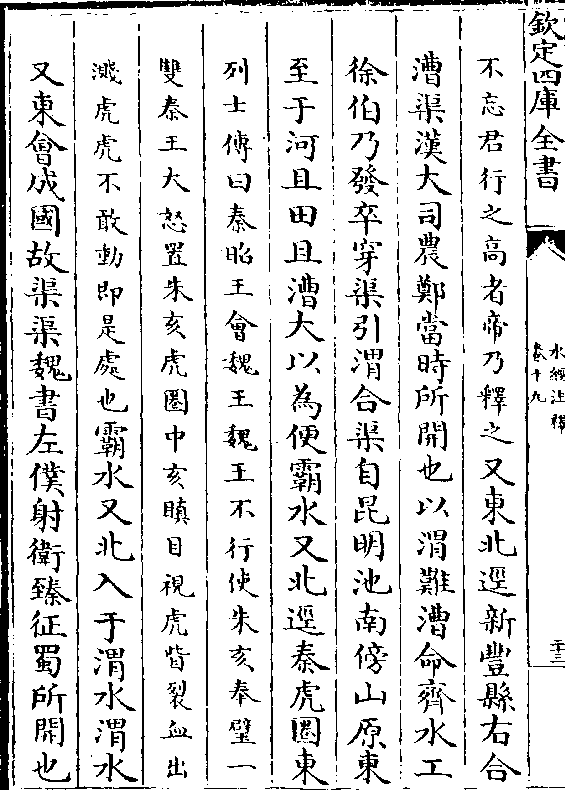 欽定四庫全書
水經注釋
卷十九
二十三
不忘君行之高者帝乃釋之又東北逕新豐縣右合
漕渠漢大司農鄭當時所開也以渭難漕命齊水工
徐伯乃發卒穿渠引渭合渠自昆明池南傍山原東
至于河且田且漕大以為便霸水又北逕秦虎圈東
列士傳曰秦昭王會魏王魏王不行使朱亥奉璧一
雙秦王大怒置朱亥虎圈中亥瞋目視虎眥裂血出
濺虎虎不敢動即是處也霸水又北入于渭水渭水
又東會成國故渠渠魏書左僕射衛臻征蜀所開也